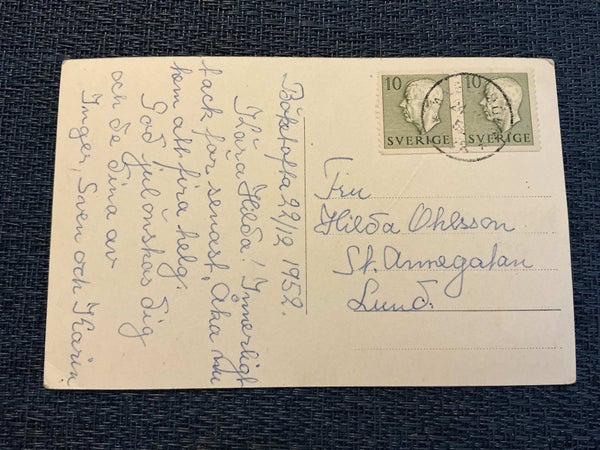 Båstofta 22/12 1952.
Kära Hilda! Innerligt
tack för senast, Åka nu
hem att fira helg.
God jul önskas Dig
och de Dina av
Inger, Sven och Karin
10
SVERIGE
10
SVERIGE
Fru
Hilda Ohlsson
St. Annegatan
Lund.